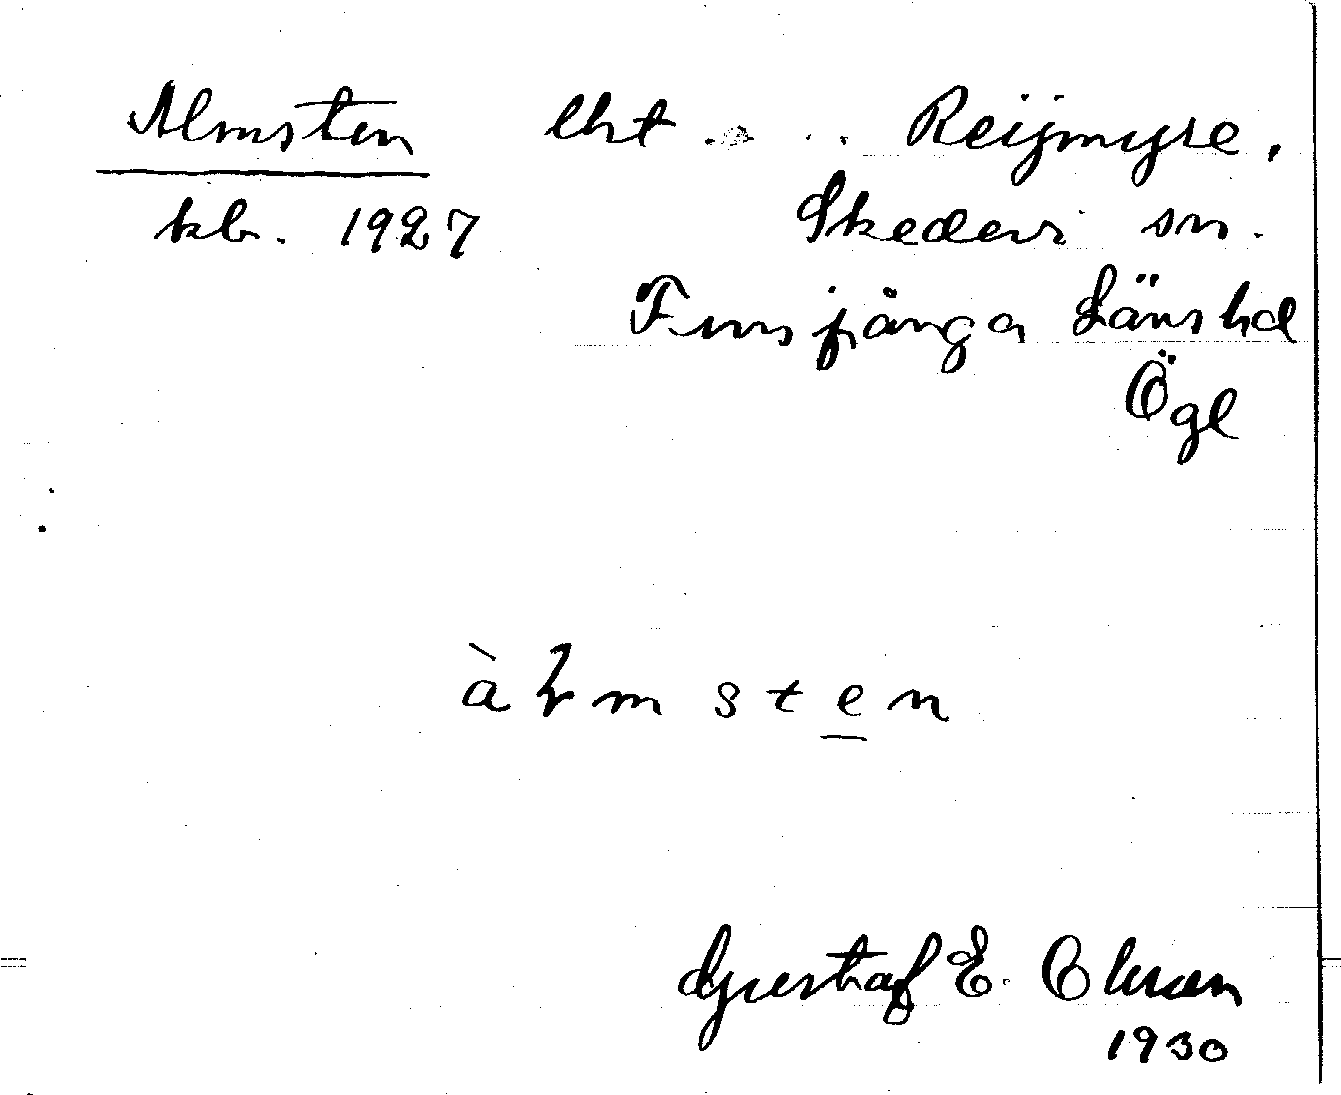 Almsten lht . . . Reijmyre,
kb. 1927 Skedevi sn.
Finspånga Länshd
Ögl
àłmsten
Gustaf E. Olsson
1930